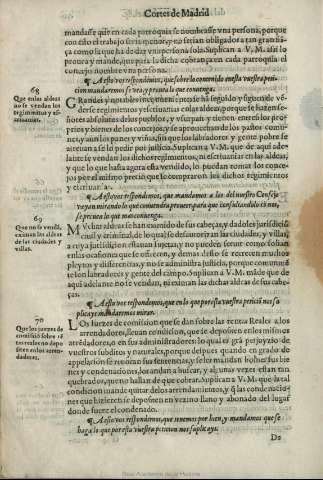 Cortes de Madrid
mandasse que en cada parroquia se nombrasse vna persona, porque
con esso el trabajo seria menor, y no serian obligados a tan
ca como la que ha de dar vna persona sola. Suplican a V. M. assi lo
prouea y mande, que para la dicha cobrança en cada parroquia el
concejo nombre vna persona.
¶ A esto vos respondemos, que sobre lo contenido en esta vuestra peti
cion mandaremos se vea, y prouea lo que conuenga.
68
Que en las aldeas
no se vendan los
regimientos y es-
criuanias.
GRandes y notables inconuenientes se han seguido y siguen de vē
derse regimientos y escriuanias en las aldeas, porque se hazen se-
ñores absolutos de los pueblos, y vsurpan y tienen entre si los pro-
prios y bienes de los concejos, y se aprouechan de los pastos comu-
nes, y aun los panes y viñas, sin que los labradores y gente pobre se
atreuan a se lo pedir por justicia. Suplican a V. M. que de aqui ade-
lante se vendan los dichos regimientos, ni escriuanias en las aldeas,
y que lo que hasta agora esta vendido, lo puedan tomar los conce-
jos por el mismo precio que lo compraron los dichos regimientos
y escriuania.
¶ A esto vos respondemos, que mandamos a los del nuestro Consejo
vayan mirando lo que conuendra proueer, para que consultandolo cō nos,
se prouea lo que mas conuenga.
69
Que no se vendā,
eximan las aldeas
de las ciudades y
villas.
MVchas aldeas se han eximido de sus cabeças, y dadoles jurisdiciō
ciuil y criminal, de lo qual se desautorizan las ciudades, y villas,
a cuya jurisdicion estauan sujetas, y no pueden seruir como solian
en las ocasiones que se ofrecen, y demas desto se recrecen muchos
pleytos y differencias, y no se administra justicia, porque comunmē
te son labradores y gente del campo. Suplican a V. M. māde que de
aqui adelante no se vendan, ni eximan las dichas aldeas de sus cabe-
ças.
¶ A esto vos respondemos, que en lo que por esta vuestra peticiō nos su
plicays mandaremos mirar.
70
Que los juezes de
comissiō sobre rē
tas reales no depo
siten en los arren-
dadores.
LOs juezes de comission que se dan sobre las rentas Reales a los
arrendadores, lleuan comission, que se depositen en los mismos
arrendadores, o en sus administradores: lo qual es grā perjuyzio de
vuestros subditos y naturales, porque despues quando en grado de
appelacion se reuocan sus sentencias, y se les mandan boluer sus bie
nes y condenaciones, lo andan a buscar, y algunas vezes estan tan
quebrados, que no hallan de que cobrar. Suplican a V. M. que la tal
condicion mande quitar de los arrendamientos, y q̄ las condenacio
nes que hizieren se depositen en vezino llano y abonado del lugar
donde fuere el condenado.
¶ A esto vos respondemos, que tenemos por bien, y mandamos que se
haga lo que por esta vuestra peticion nos suplicays.
De